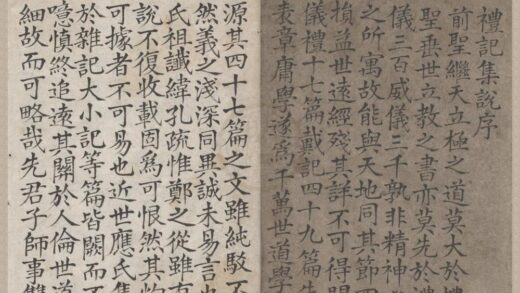 禮記集說序
前聖繼天立極之道莫大於禮
聖垂世立教之書亦莫先於禮
儀三百威儀三千孰非精神
之所寓故能與天地同其節四
損益世遠經殘其詳不可得聞
儀禮十七篇戴記四十九篇先
表章庸學遂爲千萬世道學
源其四十七篇之文雖純駁不
然義之淺深同異誠未易言也
氏祖讖緯孔疏惟鄭之從雖有
說不復收載固爲可恨然其灼
可據者不可易也近世應氏集
於雜記大小記等篇皆闕而不
噫慎終追遠其關於人倫世道
細故而可略哉先君子師事雙